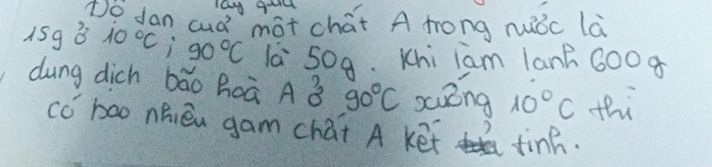 Độ tan của một chất A trong nước là
15g ở 10°C; 90°C là 50g. Khi làm lạnh 600g
dung dịch bão hoà A ở 90°C xuống 10°C thì
có bao nhiêu gam chất A kết tinh.